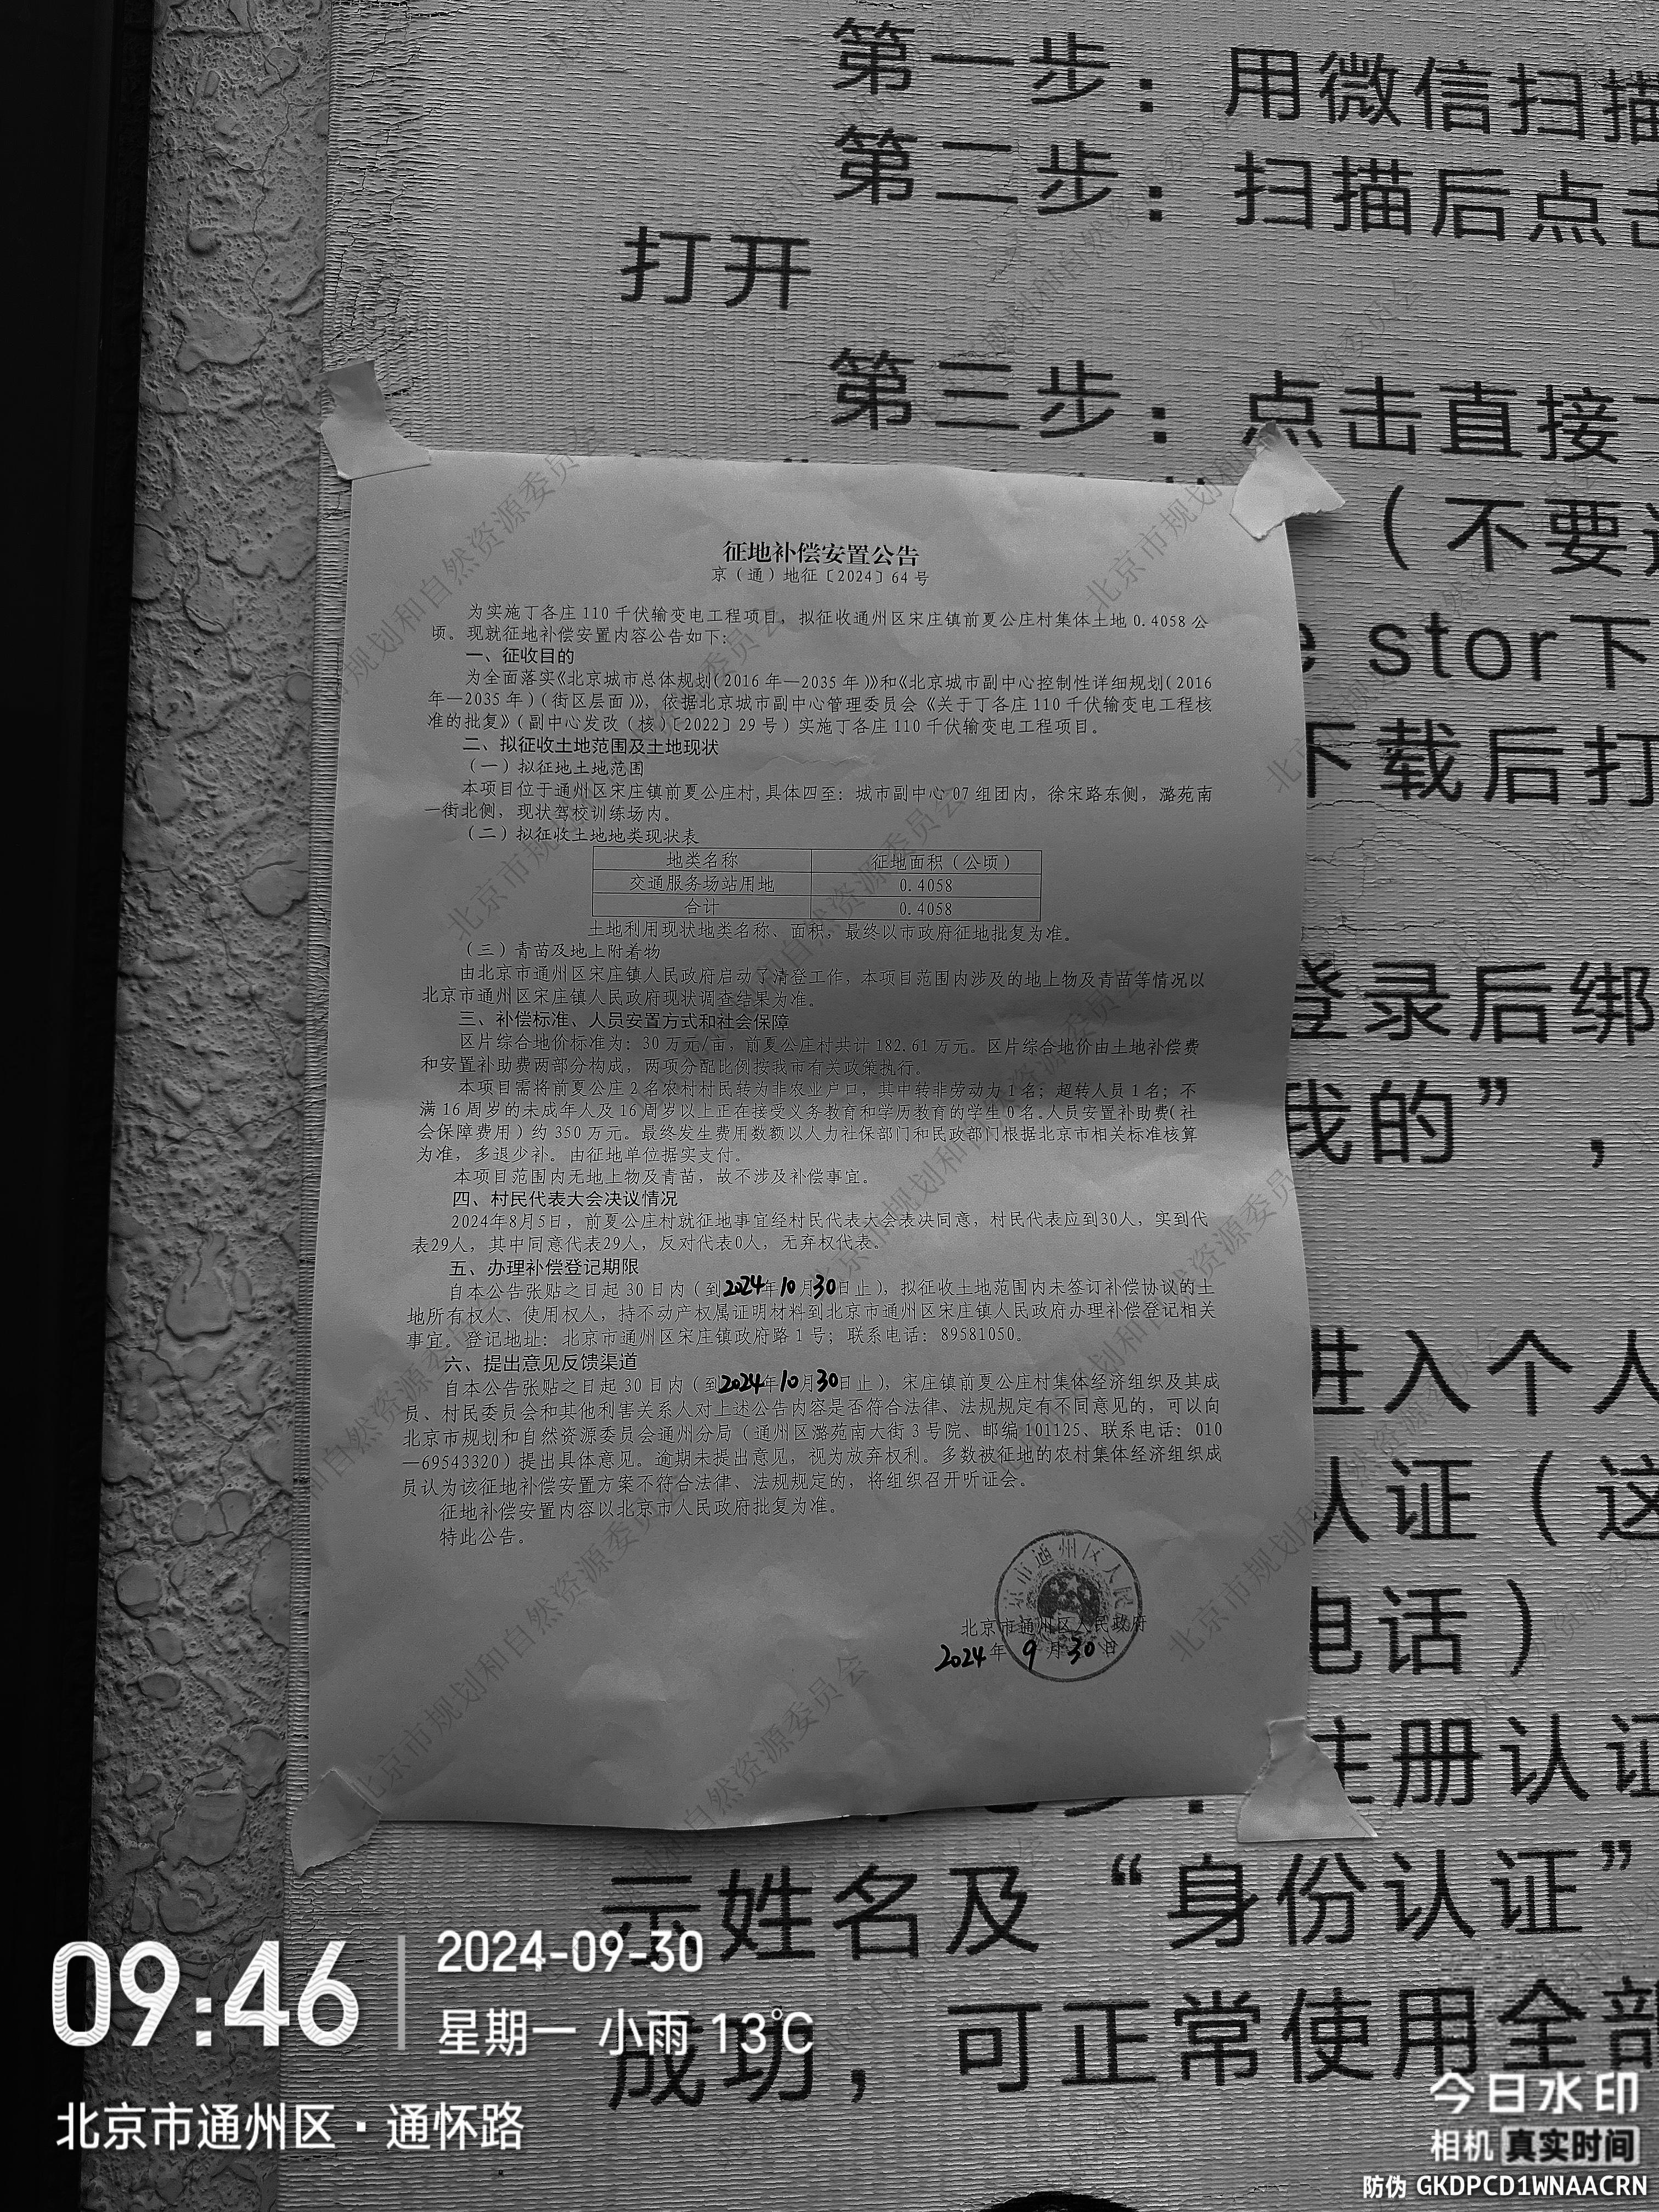 第一步：用微信扫描
第二步：扫描后点击
打开
第三步：点击直接下
（不要
e stor下
下载后打
登录后绑
我的”，
进入个人
认证（这
电话）
注册认证
示姓名及“身份认证”
成功，可正常使用全部
征地补偿安置公告
京（通）地征〔2024〕64号
为实施丁各庄110千伏输变电工程项目，拟征收通州区宋庄镇前夏公庄村集体土地0.4058公
顷。现就征地补偿安置内容公告如下：
一、征收目的
为全面落实《北京城市总体规划(2016年—2035年)》和《北京城市副中心控制性详细规划(2016
年—2035年)(街区层面)》，依据北京城市副中心管理委员会《关于丁各庄110千伏输变电工程核
准的批复》(副中心发改（核）〔2022〕29号）实施丁各庄110千伏输变电工程项目。
二、拟征收土地范围及土地现状
（一）拟征地土地范围
本项目位于通州区宋庄镇前夏公庄村,具体四至：城市副中心07组团内，徐宋路东侧，潞苑南
一街北侧，现状驾校训练场内。
（二）拟征收土地地类现状表
地类名称 征地面积（公顷）
交通服务场站用地 0.4058
合计 0.4058
土地利用现状地类名称、面积，最终以市政府征地批复为准。
（三）青苗及地上附着物
由北京市通州区宋庄镇人民政府启动了清登工作，本项目范围内涉及的地上物及青苗等情况以
北京市通州区宋庄镇人民政府现状调查结果为准。
三、补偿标准、人员安置方式和社会保障
区片综合地价标准为：30万元/亩，前夏公庄村共计182.61万元。区片综合地价由土地补偿费
和安置补助费两部分构成，两项分配比例按我市有关政策执行。
本项目需将前夏公庄2名农村村民转为非农业户口，其中转非劳动力1名；超转人员1名；不
满16周岁的未成年人及16周岁以上正在接受义务教育和学历教育的学生0名。人员安置补助费(社
会保障费用)约350万元。最终发生费用数额以人力社保部门和民政部门根据北京市相关标准核算
为准，多退少补。由征地单位据实支付。
本项目范围内无地上物及青苗，故不涉及补偿事宜。
四、村民代表大会决议情况
2024年8月5日，前夏公庄村就征地事宜经村民代表大会表决同意，村民代表应到30人，实到代
表29人，其中同意代表29人，反对代表0人，无弃权代表。
五、办理补偿登记期限
自本公告张贴之日起30日内（到2024年10月30日止），拟征收土地范围内未签订补偿协议的土
地所有权人、使用权人，持不动产权属证明材料到北京市通州区宋庄镇人民政府办理补偿登记相关
事宜。登记地址：北京市通州区宋庄镇政府路1号；联系电话：89581050。
六、提出意见反馈渠道
自本公告张贴之日起30日内（到2024年10月30日止），宋庄镇前夏公庄村集体经济组织及其成
员、村民委员会和其他利害关系人对上述公告内容是否符合法律、法规规定有不同意见的，可以向
北京市规划和自然资源委员会通州分局（通州区潞苑南大街3号院、邮编101125、联系电话：010
—69543320）提出具体意见。逾期未提出意见，视为放弃权利。多数被征地的农村集体经济组织成
员认为该征地补偿安置方案不符合法律、法规规定的，将组织召开听证会。
征地补偿安置内容以北京市人民政府批复为准。
特此公告。
北京市通州区人民政府
2024年9月30日
09:46
2024-09-30
星期一 小雨 13℃
北京市通州区·通怀路
今日水印
相机 真实时间
防伪 GKDPCD1WNAACRN
北京市规划和自然资源委员会